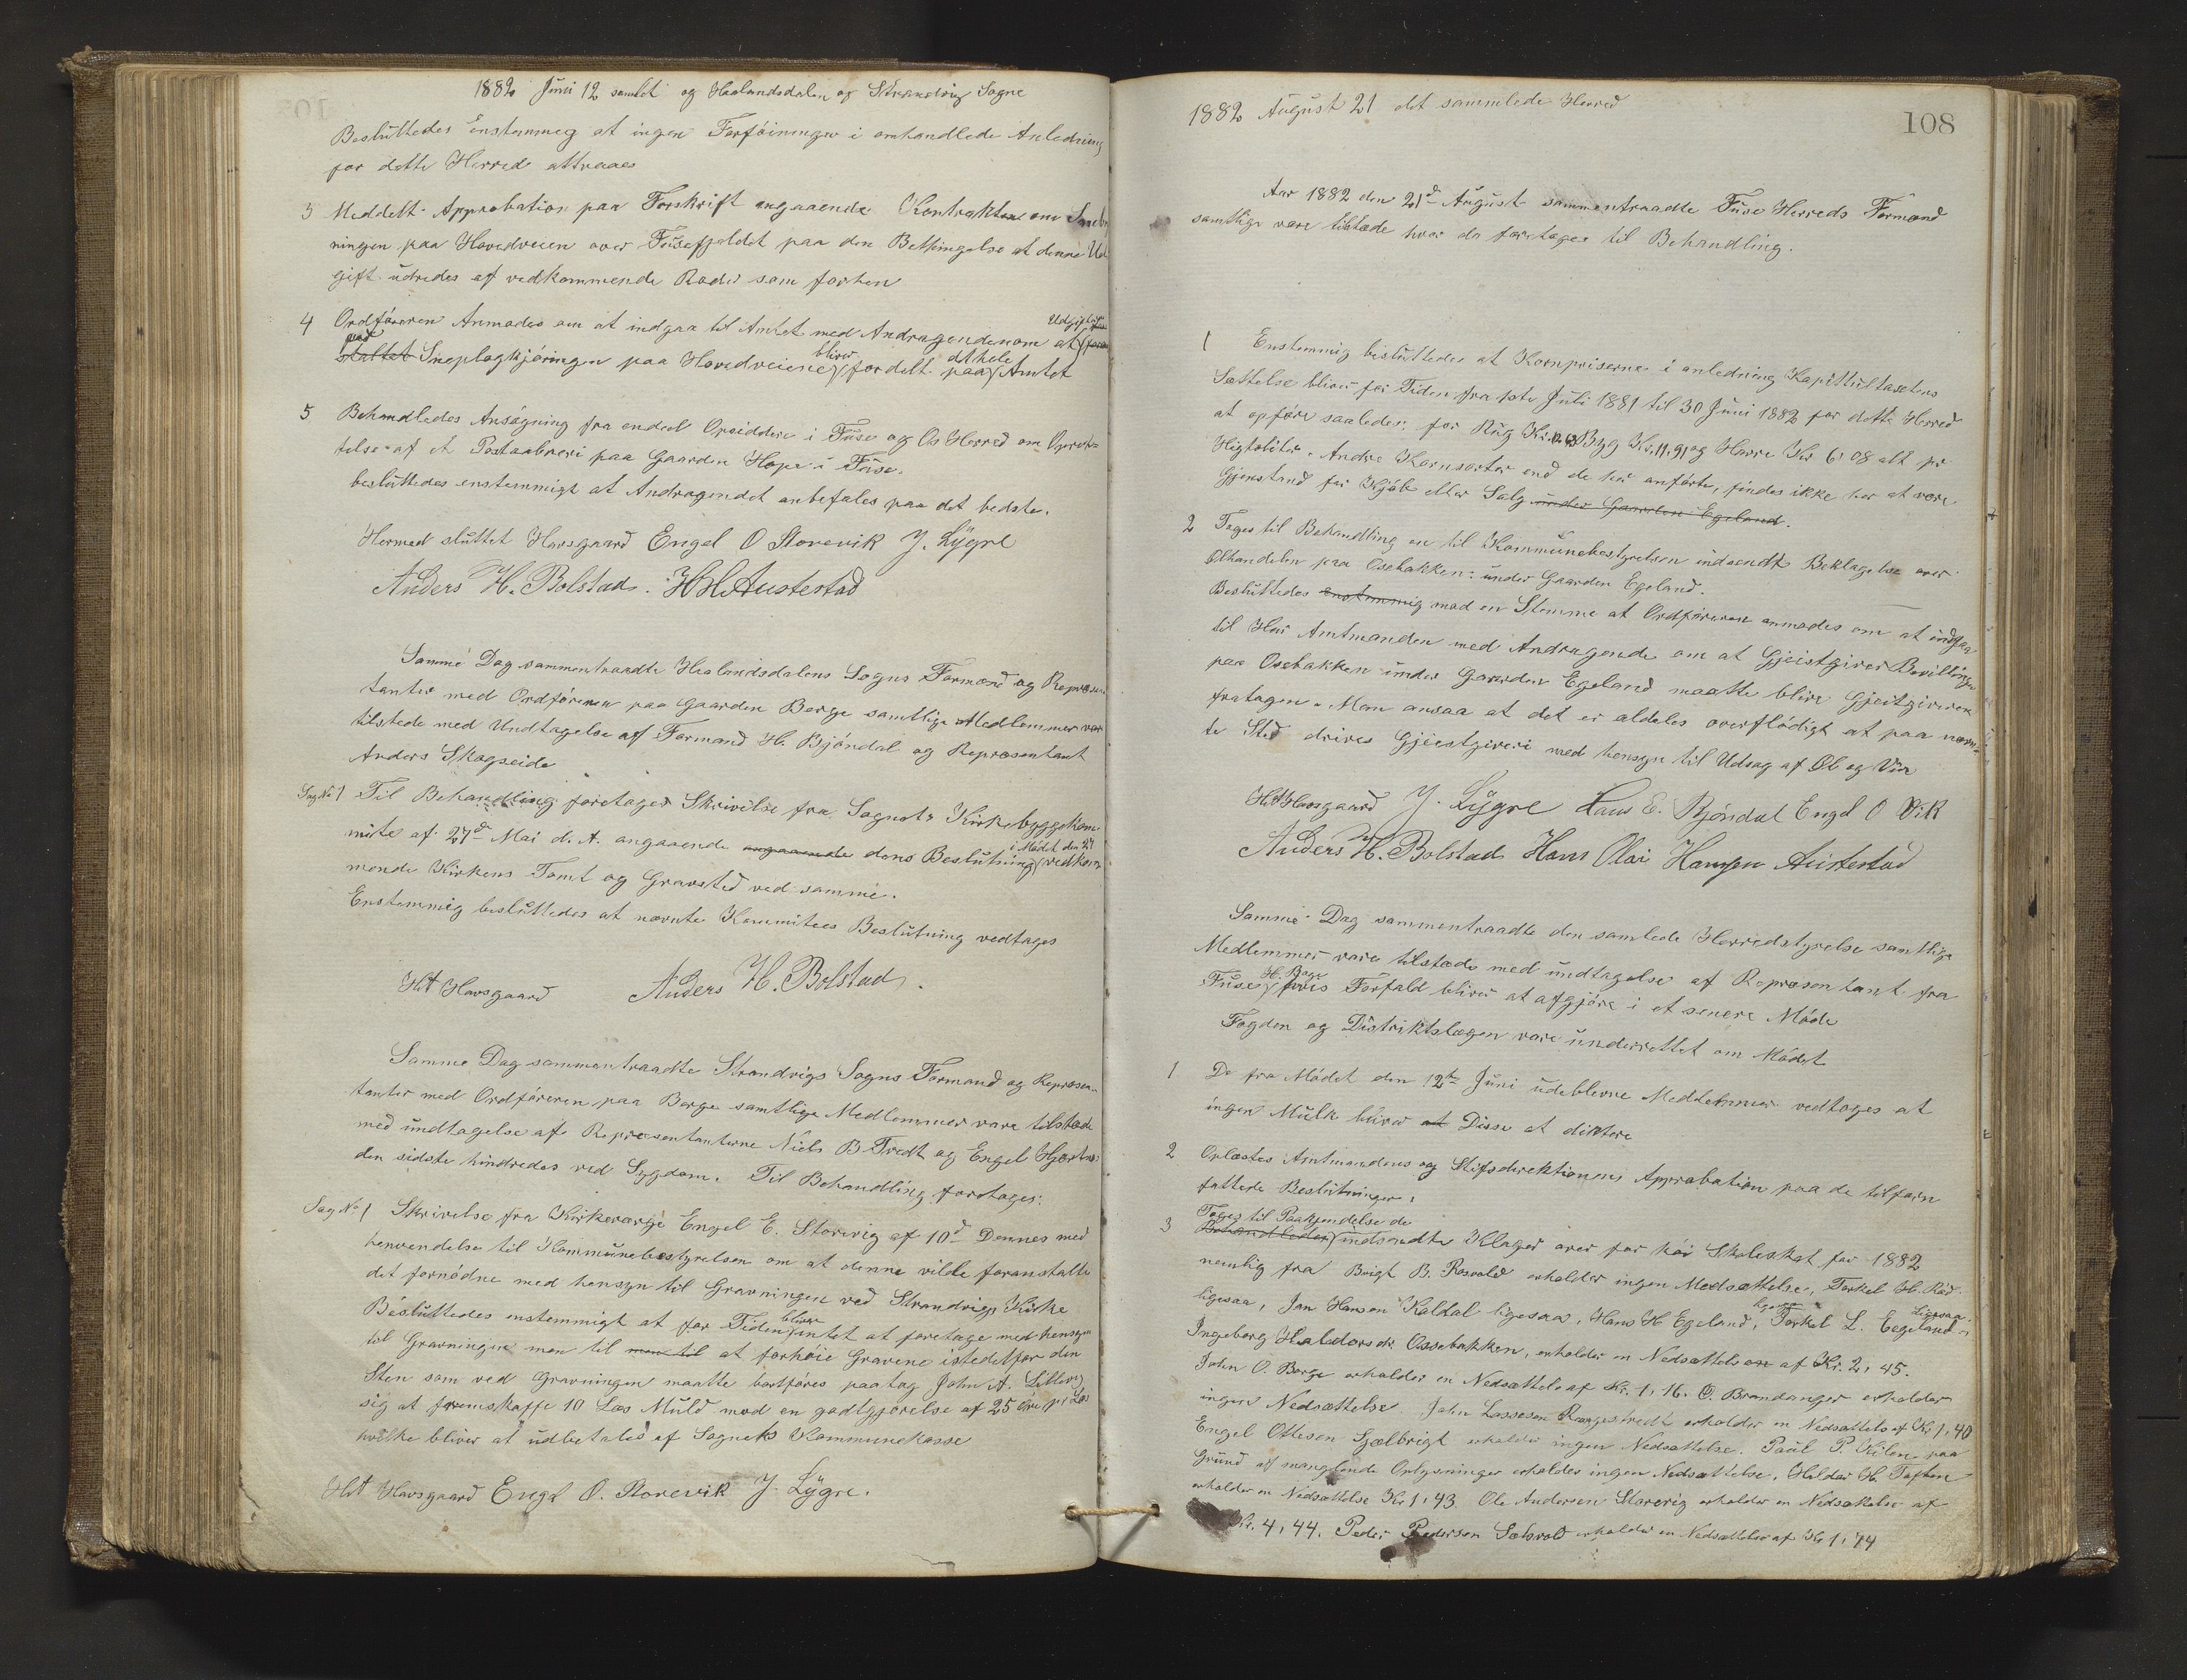 1882 Juni 12 samlet og Haalandsdalen og Strandvig Sogne
Besluttedes Enstemmig at ingen Forföininger i omhandlede Anledning
for dette Herred attraaes
3 Meddelt Approbation paa Forskrift angaaende Kontrakten om
ningen paa Hovedveien over Fusefjeldet paa den Bethingelse at denne Ud
gift udredes af vedkommende Roder som forhen
4 Ordföreren Anmodes om at indgaa til Amtet med Andragende om at Udgifterne
ved
staltet Sneplogkjöringen paa Hovedveiene bliver fordelt paa det hele Amtet
5 Behandledes Ansögning fra endeel Opsiddere i Fuse og Os Herred om Opret=
telse af et Postaabneri paa Gaarden Hope i Fuse.
besluttedes enstemmigt at Andragendet anbefales paa det bedste.
Hermed sluttet Havsgaard Engel O Storevik J. Lygre
Anders H. Bolstad. H H Austestad
Samme Dag sammentraadte Haalandsdalens Sogns Formænd og Repræsen
tanter med Ordföreren paa Gaarden Berge samtlige Medlemmer var
tilstede med Undtagelse af Formand H. Bjöndal og Repræsentant
Anders Skogseide
Sag No 1 Til Behandling foretages Skrivelse fra Sognets Kirkebyggekom
mite af 27d Mai d. A. angaaende angaaende dens Beslutning i Mödet den 27 vedkom
mende Kirkens Tomt og Gravsted ved samme.
Enstemmig besluttedes at nævnte Kommitees Beslutning vedtages
Havsgaard Anders H. Bolstad.
Samme Dag sammentraadte Strandvigs Sogns Formænd og Repræsen=
tanter med Ordföreren paa Berge samtlige Medlemmer vare tilstede
med undtagelse af Repræsentanterne Niels B Tredt og Engel
den sidste hindredes ved Sygdom. Til Behandling foretages:
Sag No 1 Skrivelse fra Kirkeværge Engel E. Storevig af 10d Dennes med
henvendelse til Kommunebestyrelsen om at denne vilde foranstalte
det fornödne med hensyn til Gravningen ved Strandvigs Kirke
Besluttedes enstemmigt at for Tiden bliver intet at foretage med hensyn
til Gravningen men til men til at forhöie Gravene istedetfor den
Sten som ved Gravningen maatte bortföres paatog John A.
sig at fremskaffe 10 Læs Muld mod en godtgjörelse af 25 Öre pr Læs
hvilke bliver at udbetales af Sognets Kommunekasse
Havsgaard Engel O. Storevik J. Lygre.
1882 August 21 det sammlede Herred
108
Aar 1882 den 21d August sammentraadte Fuse Herreds Formænd
samtlige vare tilstede hvor da foretages til Behandling.
1 Enstemmig besluttedes at Kornpriserne i anledning Kapitultaxtens
Sættelse bliver for Tiden fra 1ste Juli 1881 til 30 Juni 1882 for dette Herred
at opföre saaledes: for Rug Kr. Byg Kr. 11,91 og Havre Kr 6,08 alt pr
Hegtoliter. Andre Kornsorter end de her anförte, findes ikke her at være
Gjenstand for Kjöb eller Salg under Gaarden Egeland.
2 Toges til Behandling en til Kommunebestyrelsen indsendt Beklagelse over
Ölhandelen paa Osebakken under Gaarden Egeland.
Besluttedes enstemmig mod en Stemme at Ordföreren anmodes om at indgaa
til Hr Amtmanden med Andragende om at Gjæstgiver Bevillingen
paa Osebakken under Gaarden Egeland maatte blive Gjæstgiveren
fratagen. Man ansaa at det er aldeles overflödigt at paa nævn=
te Sted drives Gjæstgiveri med hensyn til Udsag af Öl og Vin
Havsgaard J. Lygre Hans E. Bjöndal Engel O Vik
Anders H. Bolstad Hans Olai Hansen Austestad
Samme Dag sammentraadte den samlede Herredstyrelse samtlige
Medlemmer vare tilstede med undtagelse af Repræsentant fra
Fuse H. hvis Forfald bliver at afgjöre i et senere Möde
Fogden og Distriktslægen vare underrettet om Mödet
1 De fra Mödet den 12te Juni udeblevne Meddlemmer vedtages at
ingen Mulk bliver at Disse at diktere
2 Oplæstes Amtmandens og Stifsdirektionens Approbation paa de tilforn
fattede Beslutninger.
3 Toges til Paakjendelse de
Behandledes indsendte Klager over for höi Skoleskat for 1882
nemlig fra Brigt B. Rosvold erholder ingen Nedsættelse, Torkel H. Röd
ligesaa, Jan Hansen Kaldal ligesaa, Hans H Egeland, ligesaa Torkel L. Eegeland ligesaa
Ingeborg Haldorsdr. Ossebakken, erholder en Nedsættelse af Kr. 2,45.
John O. Berge erholder en Nedsættelse af Kr. 1,16. O. Brandanger erholder
ingen Nedsættelse. John Lassesen erholder en Nedsættelse af Kr 1,40
Engel Ottesen Gjælbrigt erholder ingen Nedsættelse. Paul P. Kilen paa
Grund af manglende Oplysninger erholdes ingen Nedsættelse, Haldor H. Toften
erholder en Nedsættelse Kr 1,43. Ole Andersen Storevig erholder en Nedsættelse af
Kr. 4,44. Peder Pedersen Sælevold erholder en Nedsættelse af Kr 1,74